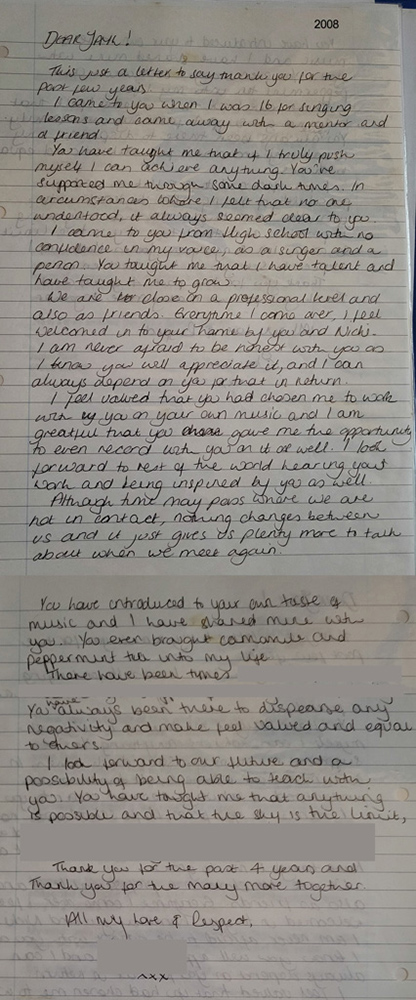 2008
DEAR JAHL!
This just a letter to say thank you for the
past few years.
I came to you when I was 16 for singing
lessons and came away with a mentor and
a friend.
You have taught me that if I truly push
myself I can achieve anything. You've
supported me through some dark times. In
circumstances where I felt that no one
understood, it always seemed clear to you.
I came to you from High school with no
confidence in my voice, as a singer and a
person. You taught me that I have talent and
have taught me to grow.
We are close on a professional level and
also as friends. Everytime I come over, I feel
welcomed in to your home by you and Nichi.
I am never afraid to be honest with you as
I know you will appreciate it, and I can
always depend on you for that in return.
I feel valued that you had chosen me to work
with you on your own music and I am
greatful that you gave me the opportunity
to even record with you on it as well. I look
forward to rest of the world hearing your
work and being inspired by you as well.
Although time may pass where we are
not in contact, nothing changes between
us and it just gives us plenty more to talk
about when we meet again.
You have introduced to your own taste of
music and I have shared mine with
you. You even brought camomile and
peppermint tea into my life.
There have been times
You have always been there to dispearse any
negativity and make feel valued and equal
to others.
I look forward to our future and a
possibility of being able to teach with
you. You have taught me that anything
is possible and that the sky is the limit,
Thank you for the past 4 years and
Thank you for the many more together.
All my love & Respect,
xxx